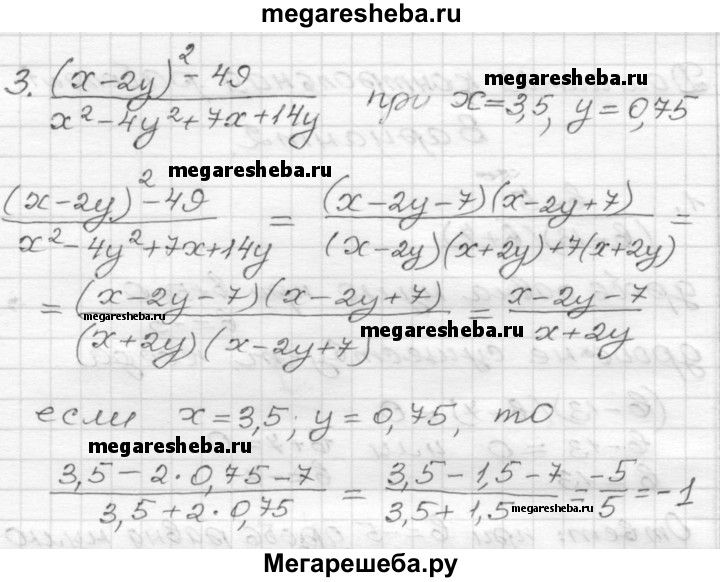 megaresheba.ru
3. ((x-2y)²-49)/(x²-4y²+7x+14y) при x=3,5, y=0,75
megaresheba.ru
megaresheba.ru
((x-2y)²-49)/(x²-4y²+7x+14y) = ((x-2y-7)(x-2y+7))/((x-2y)(x+2y)+7(x+2y)) =
= ((x-2y-7)(x-2y+7))/((x+2y)(x-2y+7)) = (x-2y-7)/(x+2y)
megaresheba.ru
megaresheba.ru
если x=3,5; y=0,75, то
megaresheba.ru
(3,5-2·0,75-7)/(3,5+2·0,75) = (3,5-1,5-7)/(3,5+1,5) = -5/5 = -1
megaresheba.ru
Мегарешеба.ру